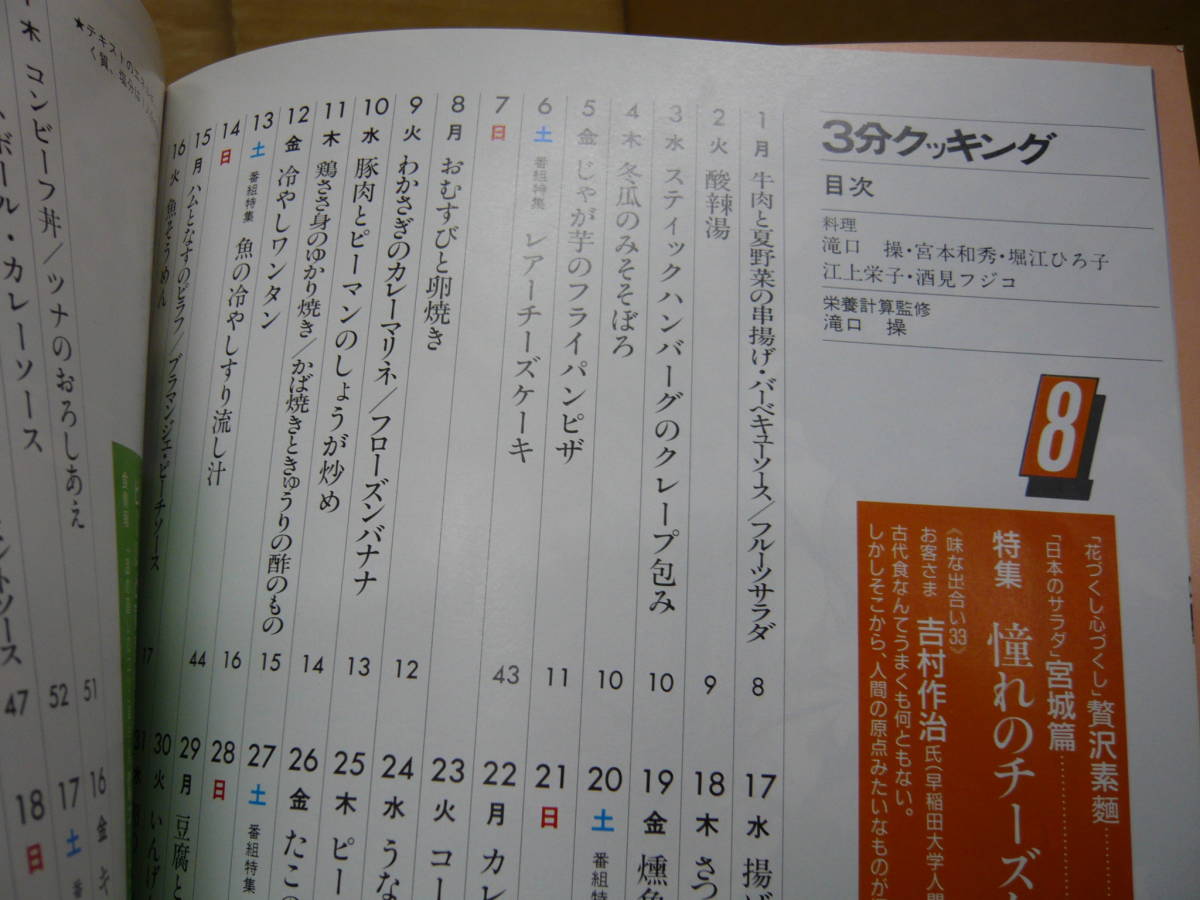 3分クッキング
目次
料理
滝口 操・宮本和秀・堀江ひろ子
江上栄子・酒見フジコ
栄養計算監修
滝口 操
8
「花づくし心づくし」贅沢素麵
「日本のサラダ」宮城篇
特集 憧れのチーズ
《味な出合い33》
お客さま 吉村作治氏(早稲田大学人間
古代食なんてうまくも何ともない。
しかしそこから、人間の原点みたいなものが
1 月 牛肉と夏野菜の串揚げ・バーベキューソース/フルーツサラダ 8
2 火 酸辣湯 9
3 水 スティックハンバーグのクレープ包み 10
4 木 冬瓜のみそそぼろ 10
5 金 じゃが芋のフライパンピザ 11
6 土 番組特集 レアーチーズケーキ 43
7 日
8 月 おむすびと卵焼き 12
9 火 わかさぎのカレーマリネ/フローズンバナナ 13
10 水 豚肉とピーマンのしょうが炒め 14
11 木 鶏ささ身のゆかり焼き/かば焼きときゅうりの酢のもの 15
12 金 冷やしワンタン 16
13 土 番組特集 魚の冷やしすり流し汁 44
14 日
15 月 ハムとなすのピラフ/ブラマンジェ・ピーチソース 17
16 火 魚そうめん
17 水 揚げ
18 木 さつ
19 金 燻魚
20 土 番組特
21 日
22 月 カレ
23 火 コー
24 水 うな
25 木 ピー
26 金 たこの
27 土 番組特集
28 日
29 月 豆腐と
30 火 いんげ
31
★テキストのエネル
く質、塩分は
木 コンビーフ丼/ツナのおろしあえ
ボール・カレーソース
ントソース
51
52
47
16 金 キ
17 土 番
18 日